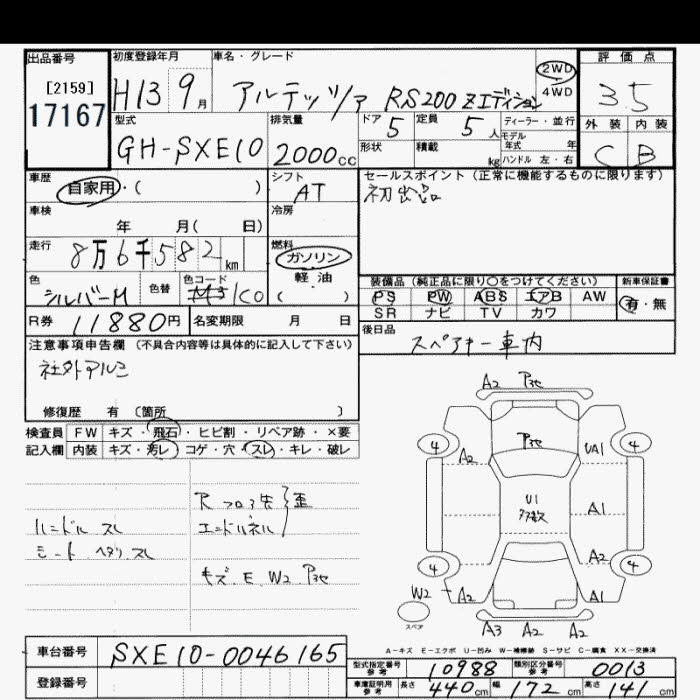 出品番号
[2159]
17167
初度登録年月
H13 9月
車名・グレード
アルテッツァ RS200 Zエディション
2WD
4WD
評価点
3.5
外装 内装
C B
型式
GH-SXE10
排気量
2000cc
ドア 5
定員 5人
形状
積載 kg
ディーラー・並行
モデル年式 年
ハンドル 左・右
車歴
自家用・( )
シフト
AT
セールスポイント(正常に機能するものに限ります)
初出品
車検
年 月( 日)
冷房
走行
8万6千582km
燃料
ガソリン
軽油
( )
色
シルバーM
色替
色コード
1C0
装備品(純正品に限り○をつけてください)
PS PW ABS エアB AW
SR ナビ TV カワ
新車保証書
有・無
R券 11880円
名変期限 月 日
後日品
スペアキー 車内
注意事項申告欄 (不具合内容等は具体的に記入して下さい)
社外アルミ
修復歴 有 〔箇所 〕
検査員 FW キズ・飛石・ヒビ割・リペア跡・×要
記入欄 内装 キズ・汚レ・コゲ・穴・スレ・キレ・破レ
ハンドル スレ
シート ヘタリ スレ
R フロア先 歪
エンドパネル
キズ E W2 P他
A2 P他
4 A2 P他 UA1 4
U1
多数
A1
A2
4 4
W2 A2 A1
スペア
A3 A2 A2
A-キズ E-エクボ U-凹み W-補修跡 S-サビ C-腐食 XX-交換済
車台番号 SXE10-0046165
登録番号
型式指定番号参考 10988
類別区分番号参考 0013
車庫証明用参考 長さ 440cm 幅 172cm 高さ 141cm